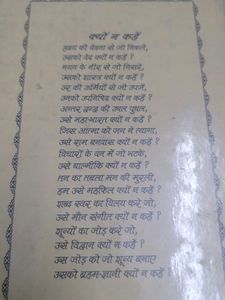 क्यों न कहें
हृदय की वेदना से जो निकले,
उसको वेद क्यों न कहें ?
नयन के नीर से जो निखरे,
उसको शास्त्र क्यों न कहें ?
उर की उर्मियों से जो उपजे,
उनको उपनिषद क्यों न कहें ?
अन्तर द्वन्द्व की उथल पुथल,
उसे महाभारत क्यों न कहें ?
जिस आत्मा को जग ने त्यागा,
उसे राम बनवास क्यों न कहें ?
विचारों के वन में जो भटके,
उसे वाल्मीकि क्यों न कहें ?
तन का तबला मन की मुरली,
हम उसे महफिल क्यों न कहें ?
शब्द स्वर का विलय करे जो,
उसे मौन संगीत क्यों न कहें ?
शून्यों का जोड़ करे जो,
उसे विद्वान क्यों न कहें ?
उस जोड़ को जो शून्य बनाए
उसको ब्रह्म-ज्ञानी क्यों न कहें ?